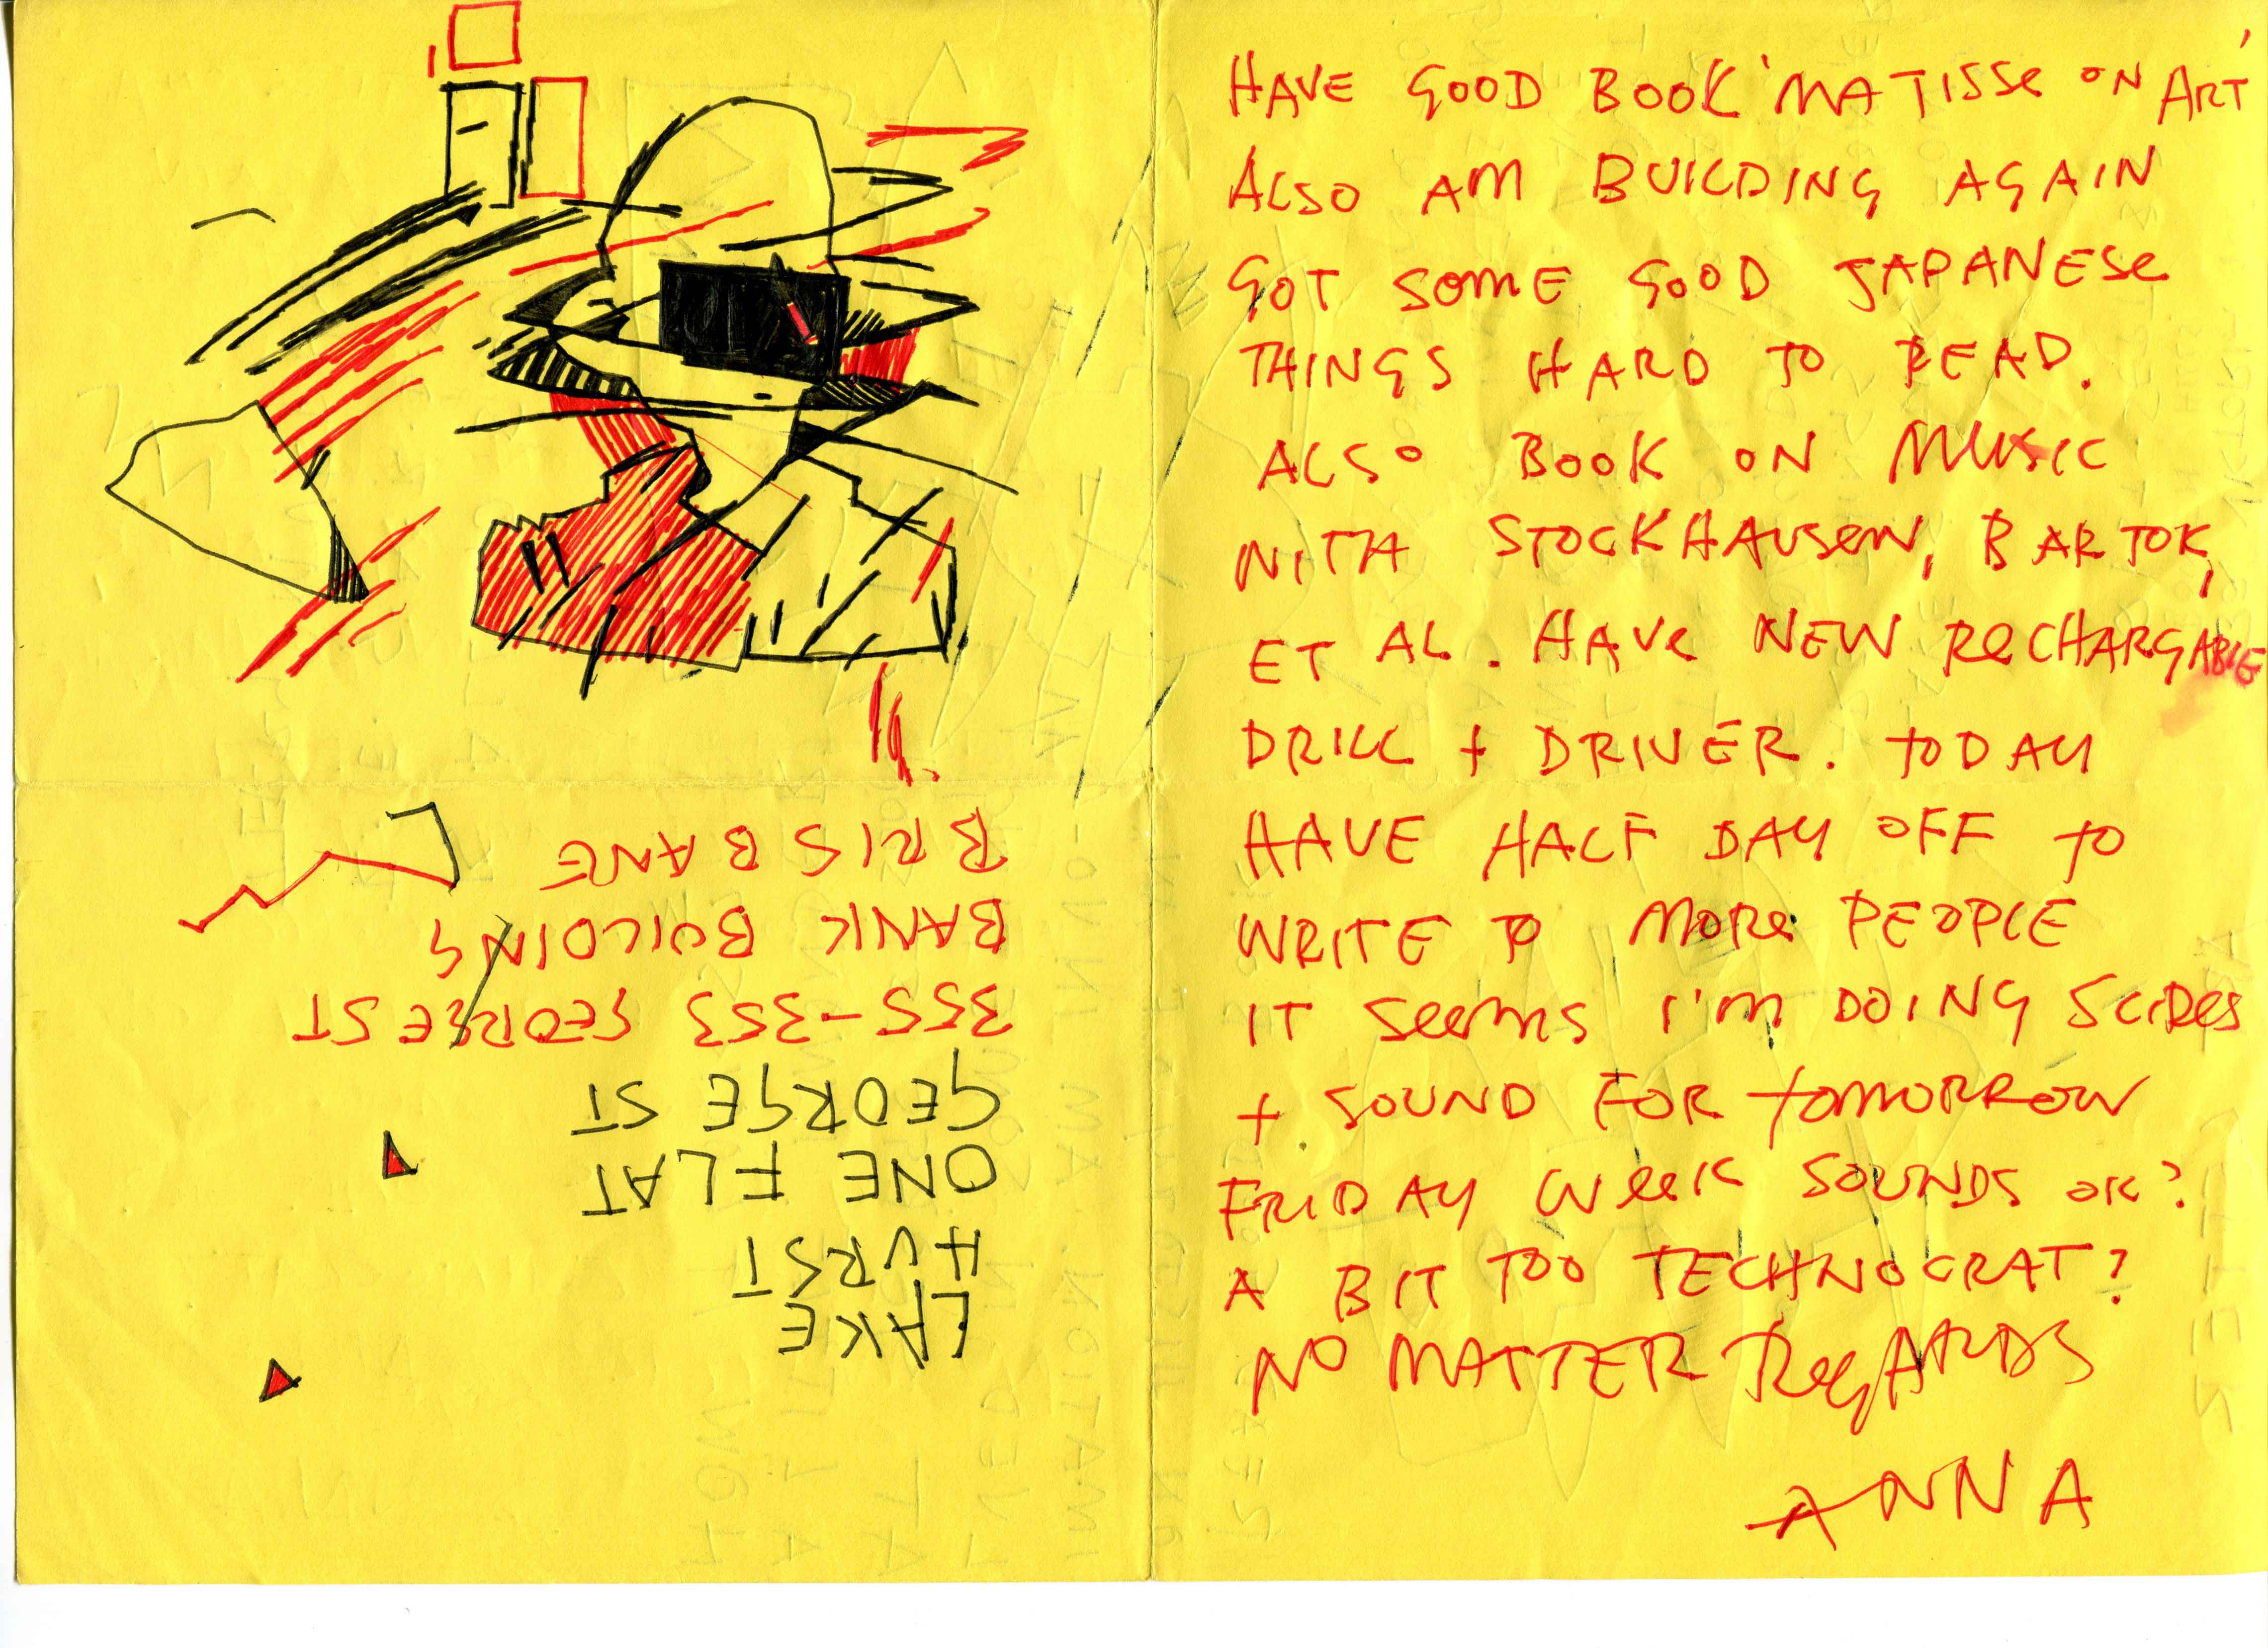 HAVE GOOD BOOK 'MATISSE ON ART'
ALSO AM BUILDING AGAIN
GOT SOME GOOD JAPANESE
THINGS HARD TO READ.
ALSO BOOK ON MUSIC
WITH STOCKHAUSEN, BARTOK,
ET AL. HAVE NEW RECHARGABLE
DRILL + DRIVER. TODAY
HAVE HALF DAY OFF TO
WRITE TO MORE PEOPLE
IT SEEMS I'M DOING SLIDES
+ SOUND FOR TOMORROW
FRIDAY WEEK SOUNDS OK?
A BIT TOO TECHNOCRAT?
NO MATTER REGARDS
ANNA
LAKE
HURST
ONE FLAT
GEORGE ST
355-353 GEORGE ST
BANK BUILDING
BRISBANE